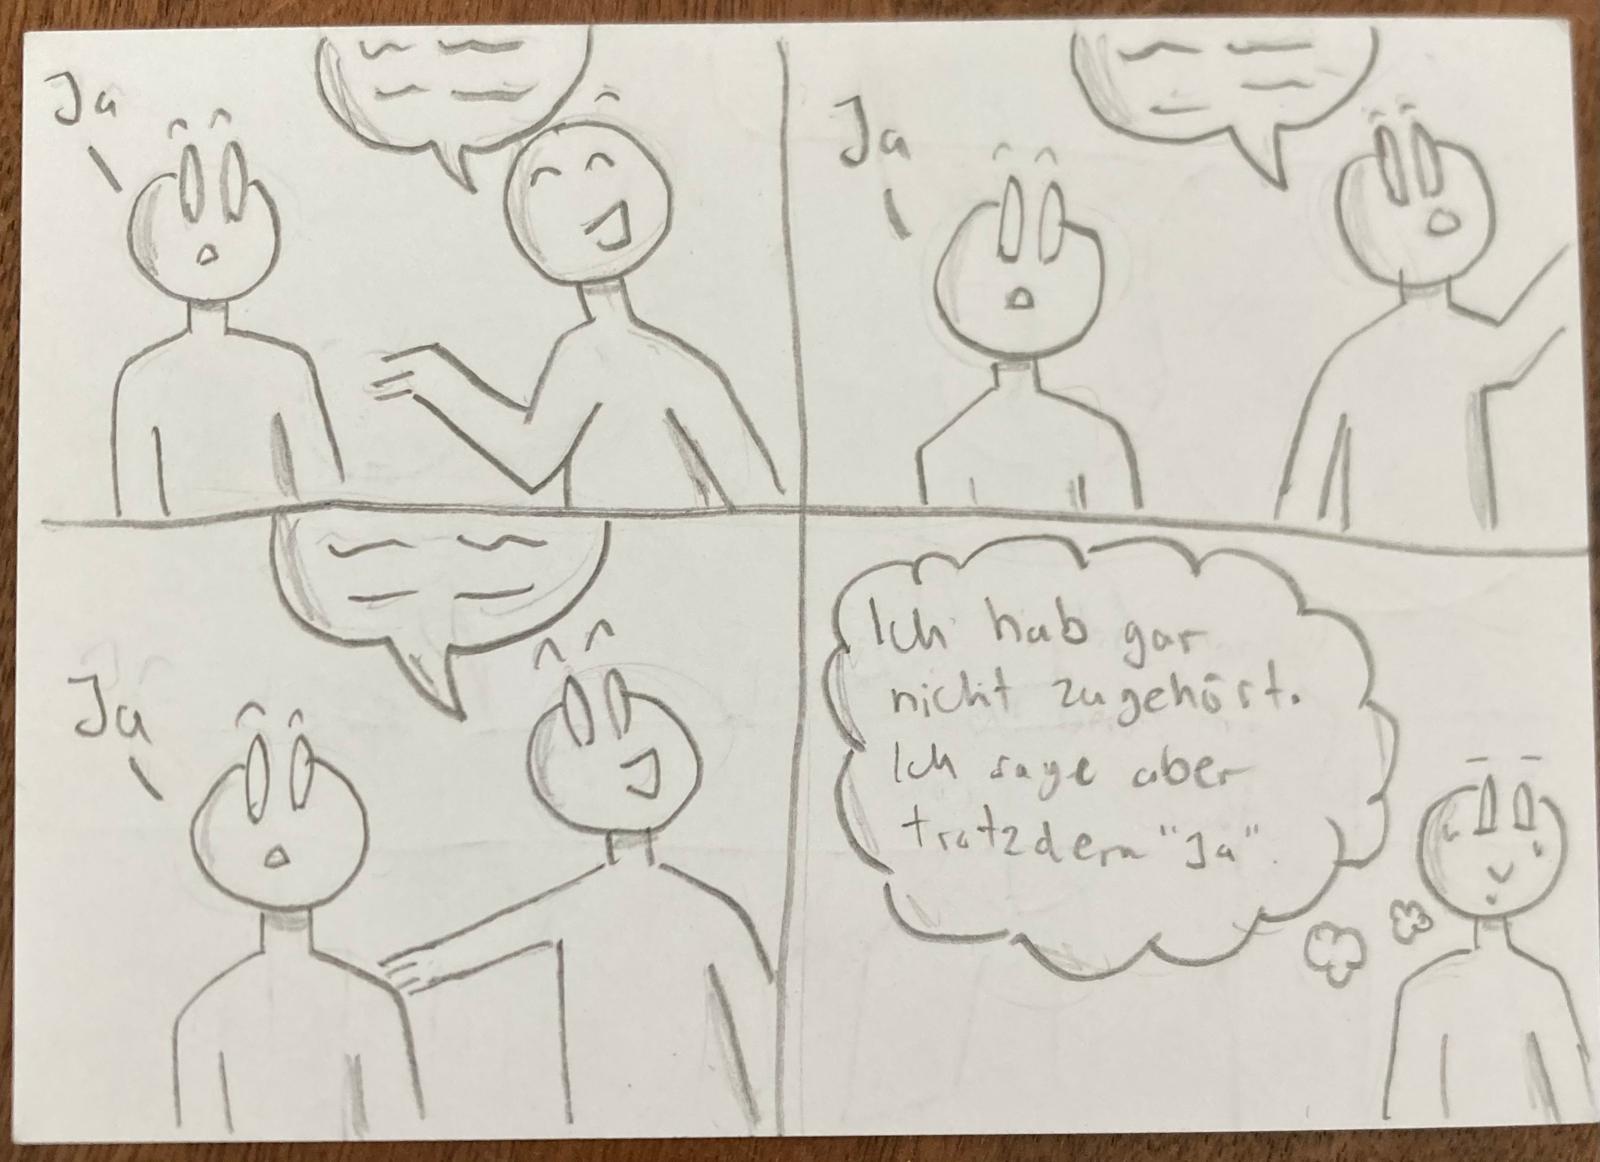 Ja
Ja
Ja
Ich hab gar
nicht zugehört.
Ich sage aber
trotzdem "Ja".